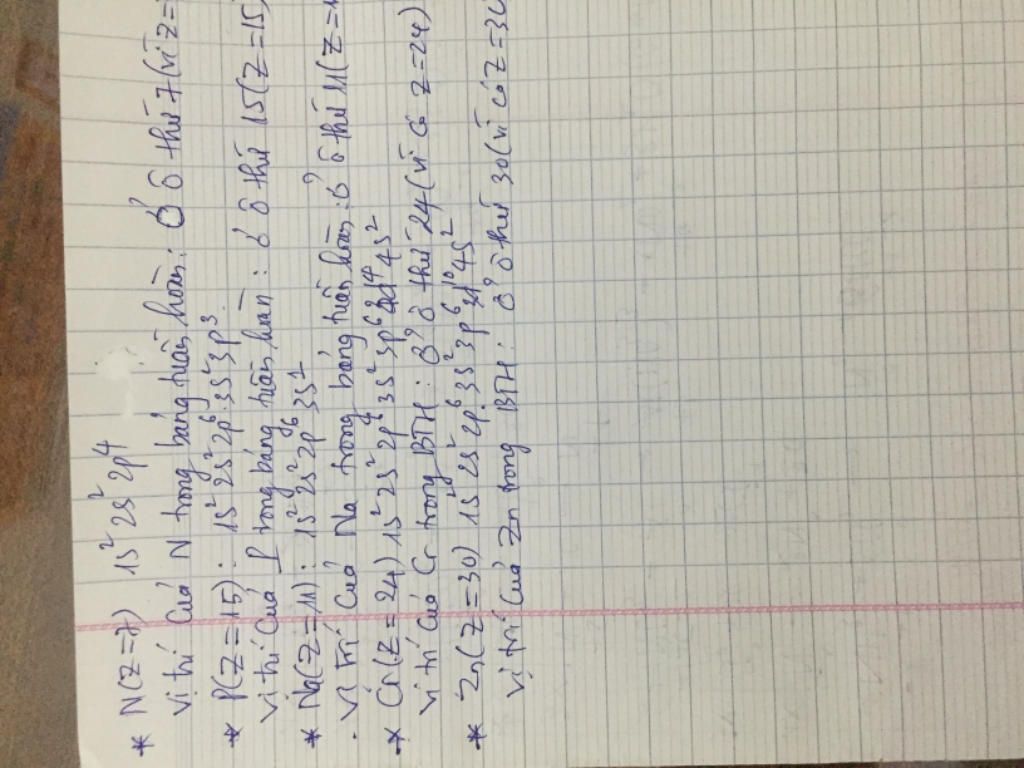 * N(Z=7) 1s² 2s² 2p⁴
Vị trí của N trong bảng tuần hoàn: Ở ô thứ 7 (vì Z=
* P(Z=15): 1s² 2s² 2p⁶ 3s² 3p³.
Vị trí của P trong bảng tuần hoàn: ở ô thứ 15 (Z=15)
* Na(Z=11): 1s² 2s² 2p⁶ 3s¹
. Vị trí của Na trong bảng tuần hoàn: Ở ô thứ 11 (Z=1
* Cr(Z=24) 1s² 2s² 2p⁶ 3s² 3p⁶ 3d⁴ 4s²
Vị trí của Cr trong BTH: Ở ô thứ 24 (vì có Z=24)
* Zn(Z=30) 1s² 2s² 2p⁶ 3s² 3p⁶ 3d¹⁰ 4s²
Vị trí của Zn trong BTH: Ở ô thứ 30 (vì có Z=30